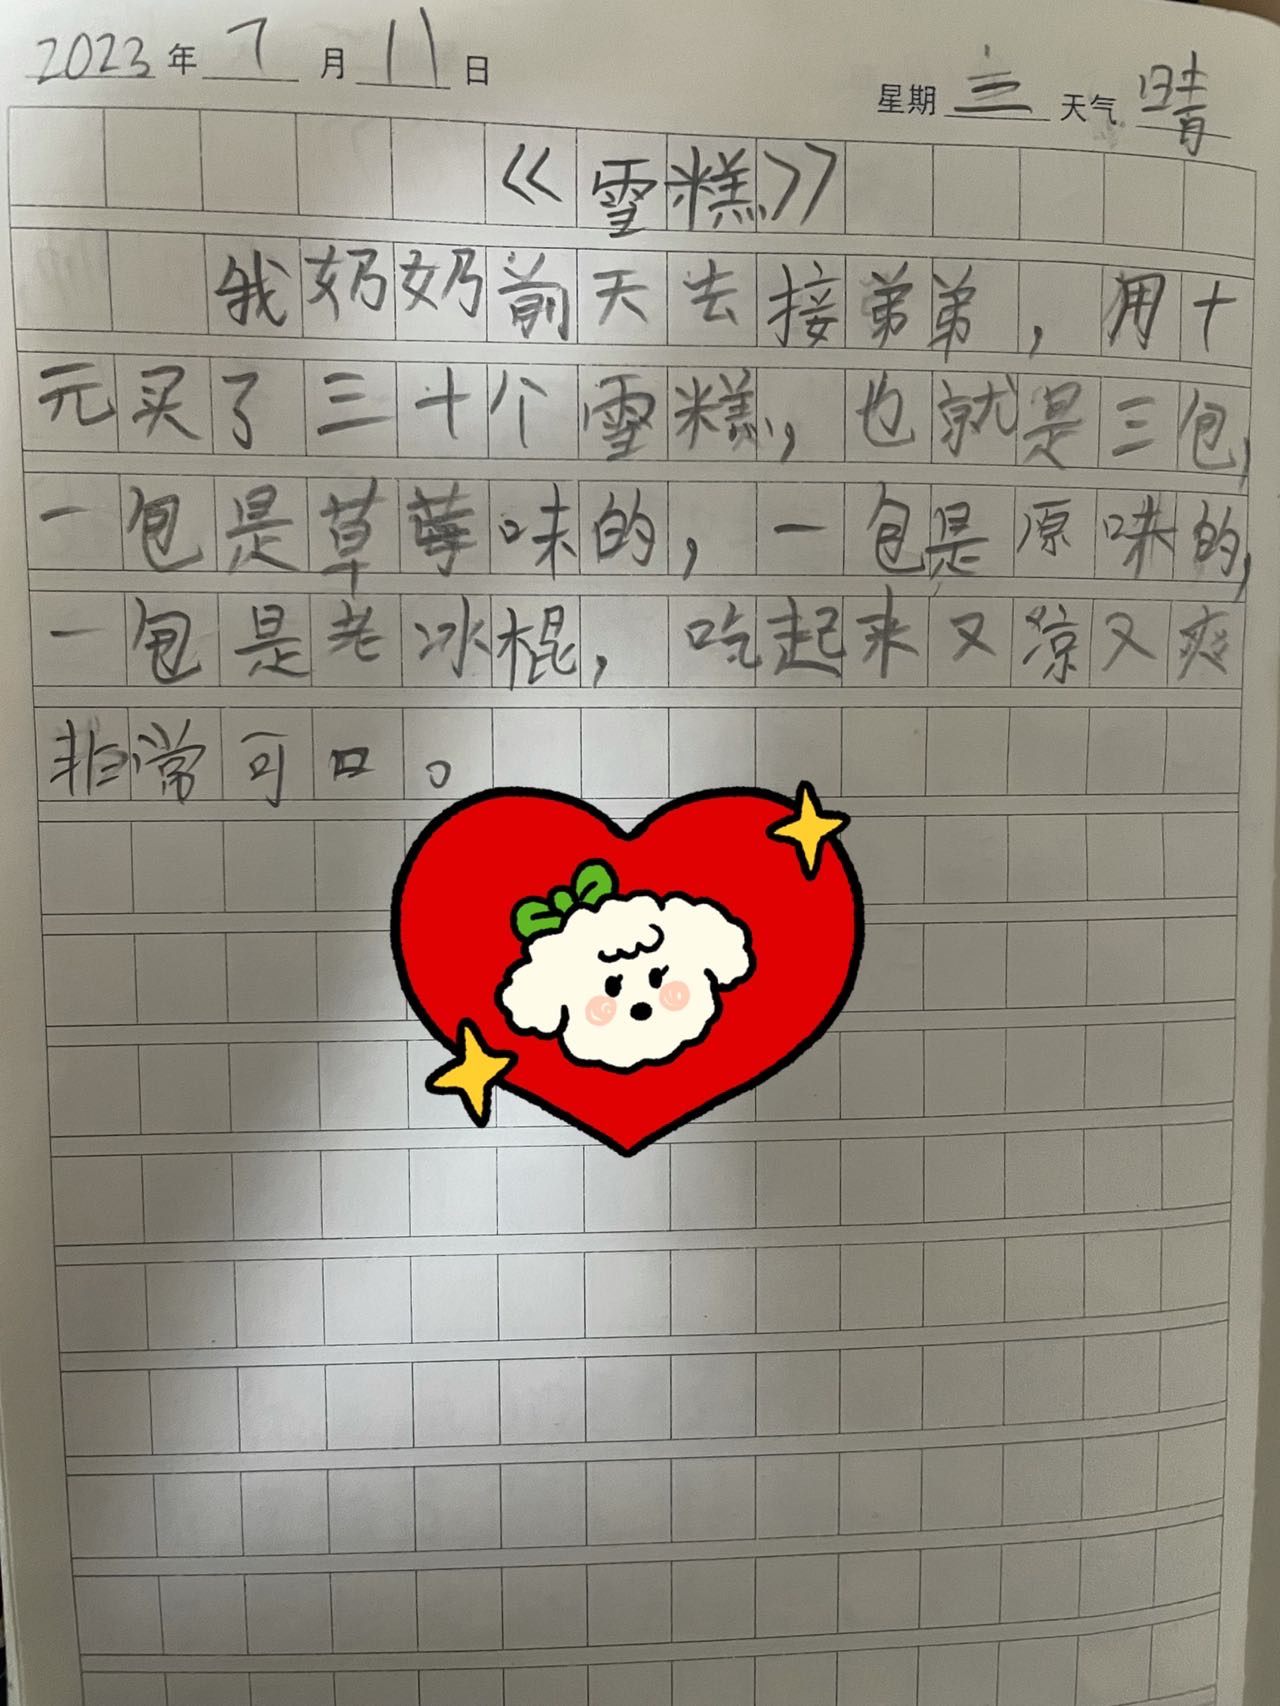 2023年7月11日 星期三 天气 晴
《雪糕》
我奶奶前天去接弟弟，用十
元买了三十个雪糕，也就是三包，
一包是草莓味的，一包是原味的，
一包是老冰棍，吃起来又凉又爽
非常可口。